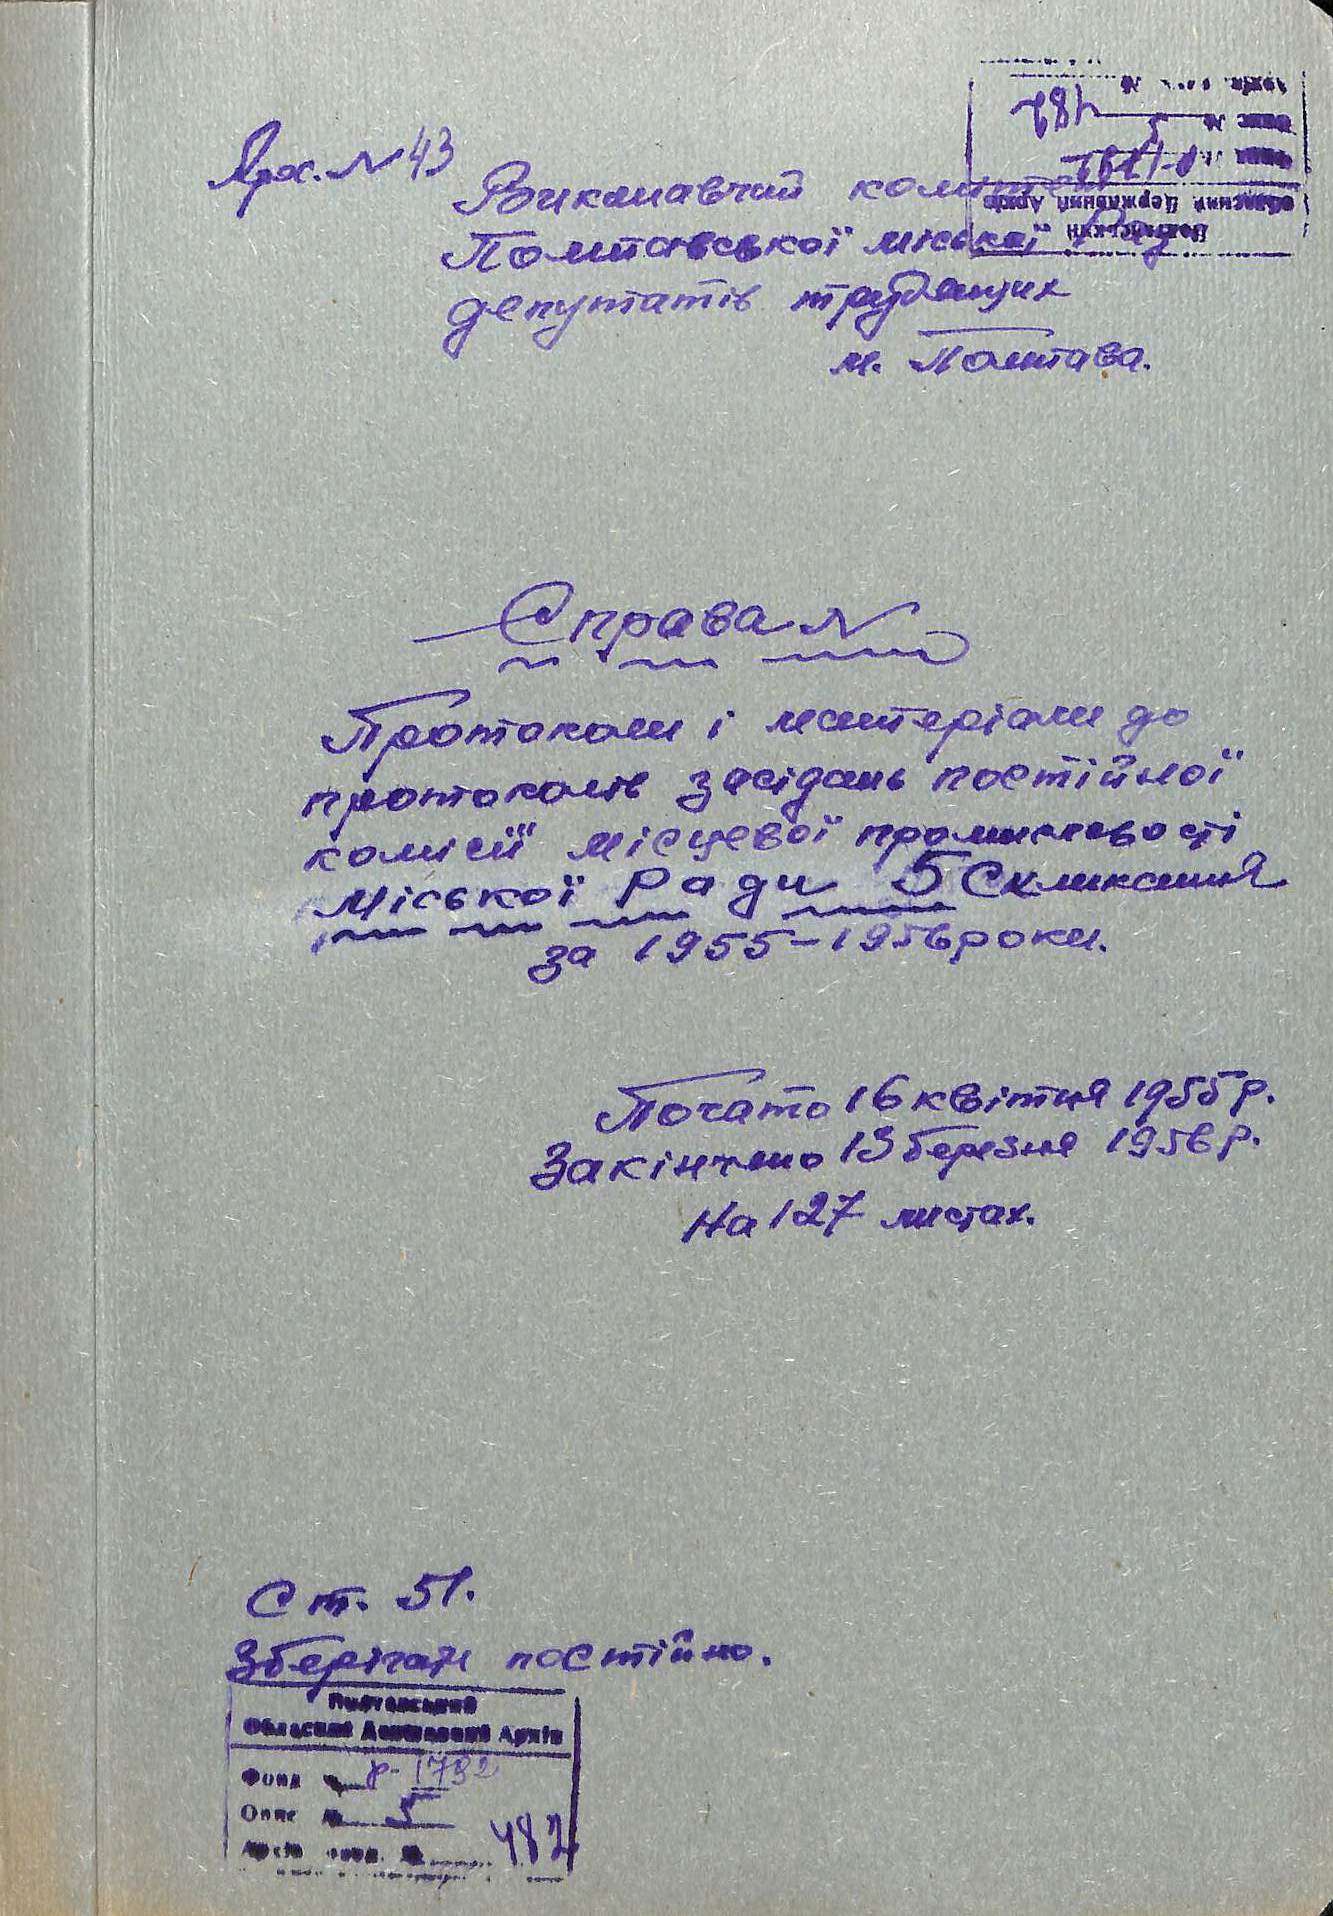 Арх. № 43
Виконавчий комітет
Полтавської міської Рад
депутатів трудящих
м. Полтава.
Полтавський
Обласний Державний Архів
Фонд
Опис № 5
482
Справа №
Протоколи і матеріали до
протоколів засідань постійної
комісії місцевої промисловості
Міської Ради 5 Скликання
за 1955-1956 роки.
Почато 16 квітня 1955 р.
Закінчено 13 березня 1956 р.
На 127 листах.
Ст. 51.
Зберігати постійно.
Полтавський
Обласний Державний Архів
Фонд № р-1792
Опис № 5
Архів № 482